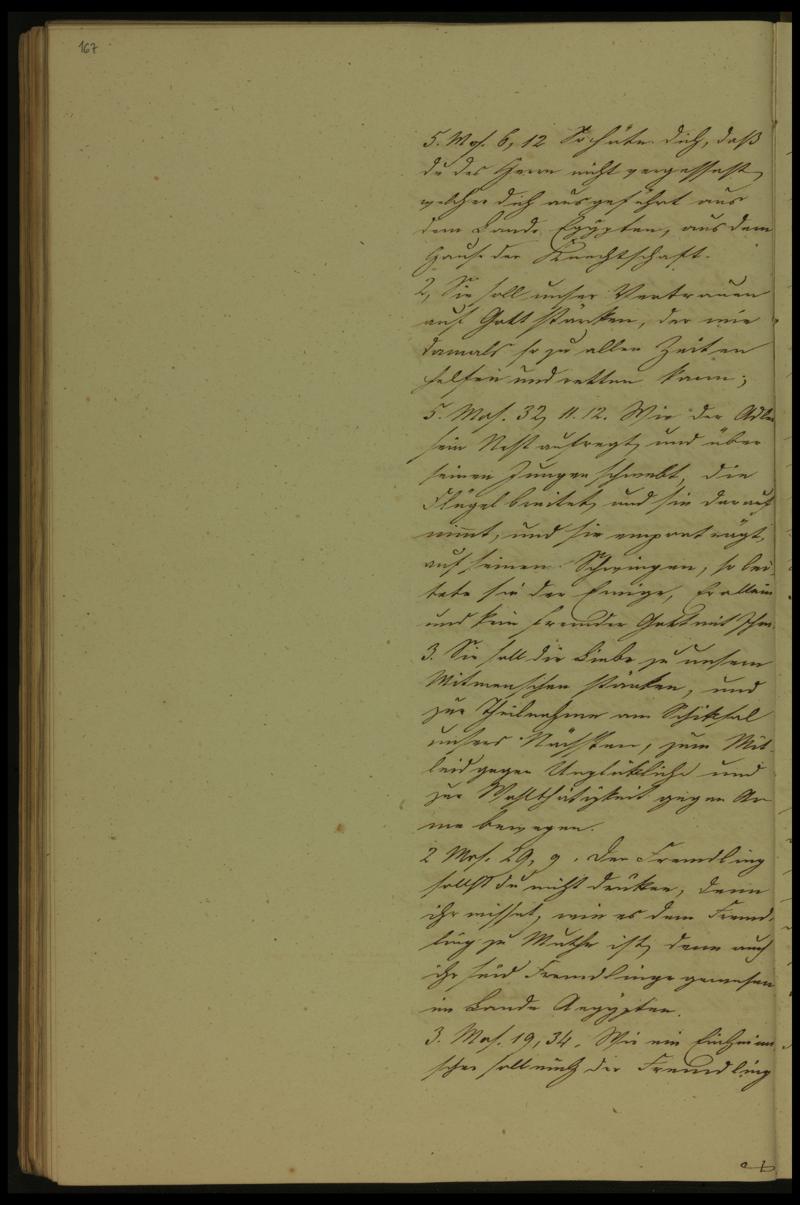 167
5. Mos. 6, 12 So hüte dich, daß
du des Herrn nicht vergessest,
welcher dich ausgeführt aus
dem Lande Egypten, aus dem
Hause der Knechtschaft.
2, Sie soll unser Vertrauen
auf Gott stärken, der wie
damals so zu allen Zeiten
helfen und retten kann;
5. Mos. 32, 11. 12. Wie der Adler
sein Nest aufregt, und über
seinen Jungen schwebt, die
Flügel breitet, und sie darauf
nimmt, und sie emporträgt,
auf seinen Schwingen, so lei-
tete sie der Einige, Er allein
und kein fremder Gott mit Ihm.
3. Sie soll die Liebe zu unsern
Mitmenschen stärken, und
zur Theilnahme am Schiksal
unsers Nächsten, zum Mit-
leid gegen Unglükliche und
zur Wohlthätigkeit gegen Ar-
me bewegen.
2 Mos. 29, 9. Den Fremdling
sollst du nicht drüken, denn
ihr wisset, wie es dem Fremd-
ling zu Muthe ist, denn auch
ihr seid Fremdlinge gewesen
im Lande Aegypten.
3. Mos. 19, 34. Wie ein Einheimi
scher soll euch der Fremdling